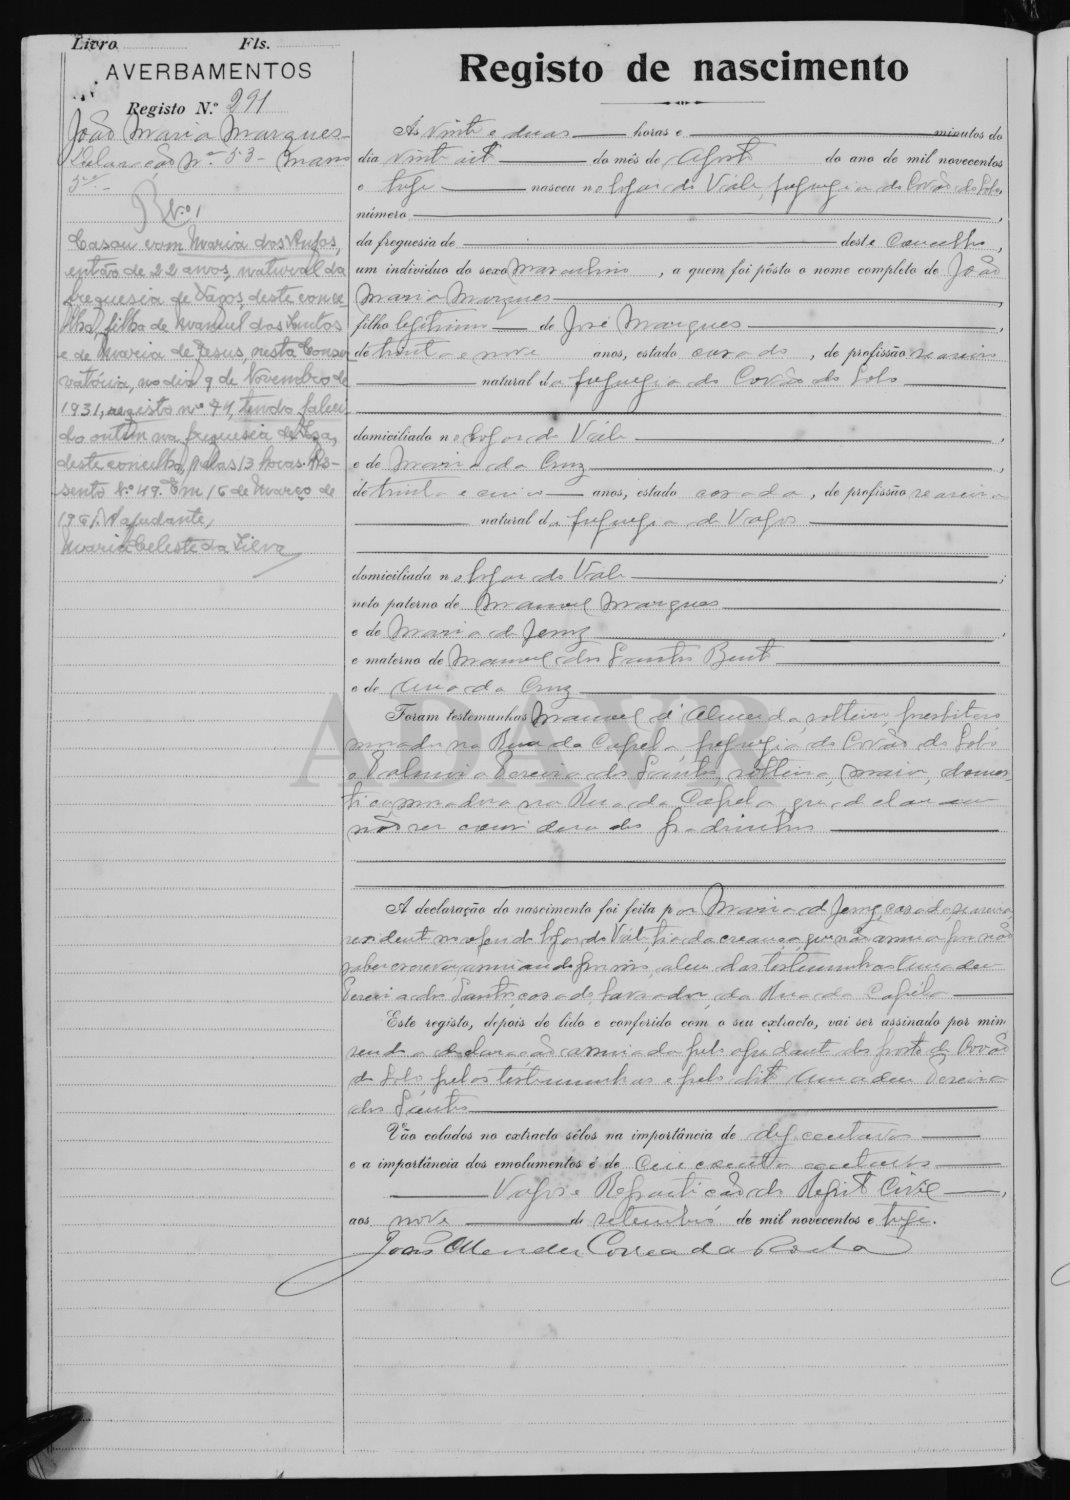 Livro Fls.
AVERBAMENTOS
Registo N.º 291
João Maria Marques
Declaração Nº 53 - Maço
Nº 1
Casou com Maria dos Anjos,
então de 22 anos, natural da
freguesia de Vagos, deste conce-
lho, filha de Manuel dos Santos
e de Maria de Jesus, nesta Conser-
vatória, no dia 9 de Novembro de
1931, registo nº 74, tendo faleci-
do ontem na freguesia de
deste concelho, pelas 13 horas. As-
sento Nº 49. Em 16 de Março de
1961. A ajudante,
Maria Celeste da Silva
Registo de nascimento
Ás vinte e duas horas e minutos do
dia vinte oito do mês de Agosto do ano de mil novecentos
e treze nasceu no logar do Vale, freguezia de Covão do Lobo,
número
da freguesia de deste Concelho,
um indivíduo do sexo masculino, a quem foi pôsto o nome completo de João
Maria Marques
filho legitimo de José Marques,
de trinta e nove anos, estado casado, de profissão seareiro
natural da freguezia de Covão do Lobo
domiciliado no logar do Vale,
e de Maria da Cruz,
de trinta e cinco anos, estado casada, de profissão seareira
natural da freguezia de Vagos
domiciliada no logar do Vale;
neto paterno de Manuel Marques
e de Maria de Jesuz,
e materno de Manuel dos Santos Bento
e de Ana da Cruz
Foram testemunhas Manuel d'Almeida, solteiro, presbitero
morador na Rua da Capela, freguezia de Covão do Lobo
e Palmira Pereira dos Santos, solteira, maior, domes-
tica, moradora na Rua da Capela, que declararam
não ser considerados padrinhos
A declaração do nascimento foi feita por Maria de Jesuz, casada, seareira,
residente no logar do Vale, tia da creança, que não assina por não
saber escrever, assinando por mim, alem das testemunhas Amadeu
Pereira dos Santos, casado, lavrador, da Rua da Capela
Este registo, depois de lido e conferido com o seu extracto, vai ser assinado por mim
sendo a declaração assinada pelo ajudante do posto de Covão
do Lobo, pelas testemunhas e pelo dito Amadeu Pereira
dos Santos
Vão colados no extracto sêlos na importância de dez centavos
e a importância dos emolumentos é de cincoenta centavos
Vagos e Repartição do Registo Civil,
aos nove de setembro de mil novecentos e treze.
João Mendes Correa da Rocha
ADAVR